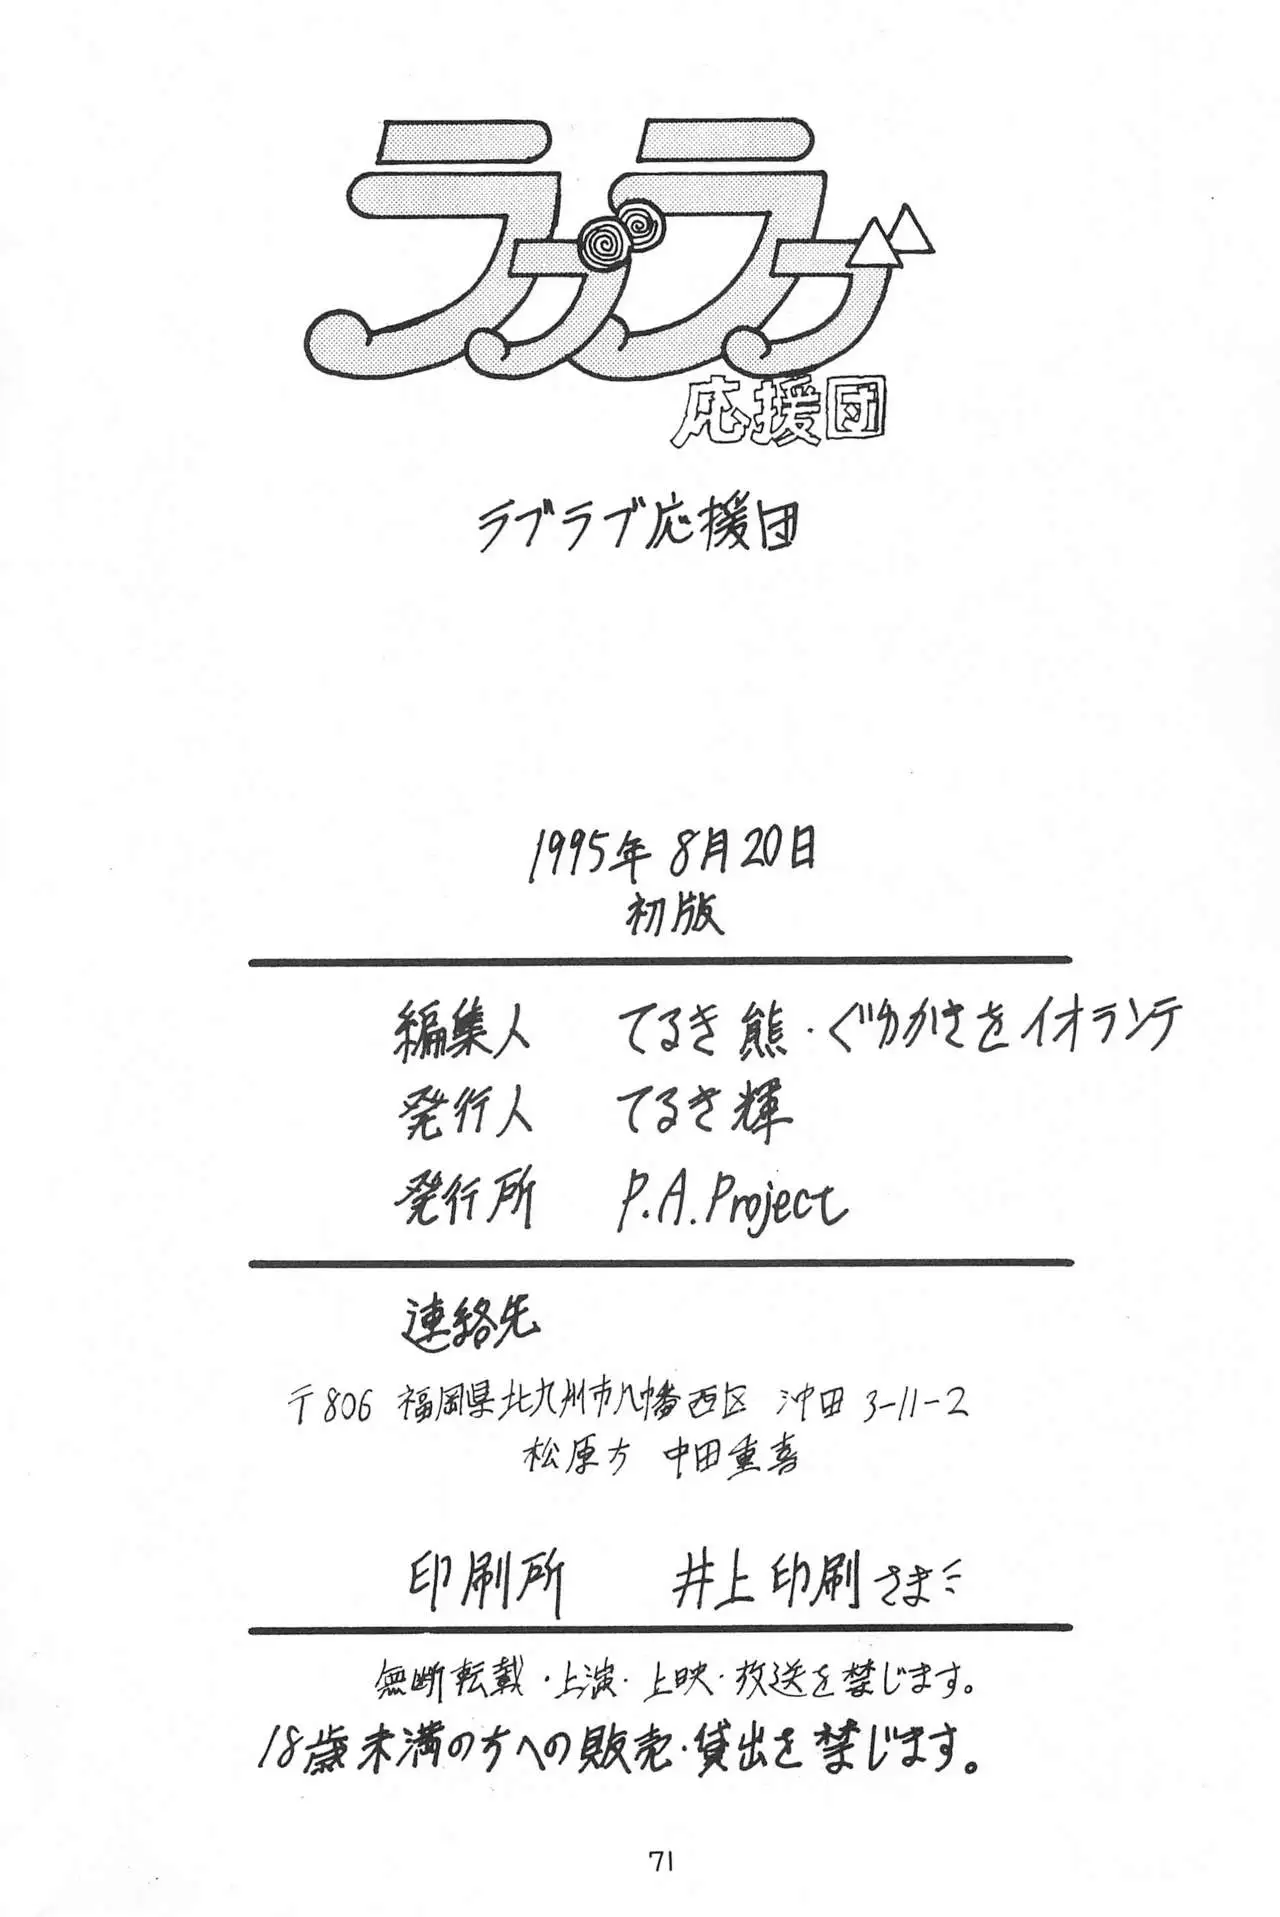 ラブラブ
応援団
ラブラブ応援団
1995年8月20日
初版
編集人 てるき熊・ぐゆかさきイオランテ
発行人 てるき輝
発行所 P.A.Project
連絡先
〒806 福岡県北九州市八幡西区 沖田3-11-2
松原方 中田重喜
印刷所 井上印刷さま
無断転載・上演・上映・放送を禁じます。
18歳未満の方への販売・貸出を禁じます。
71